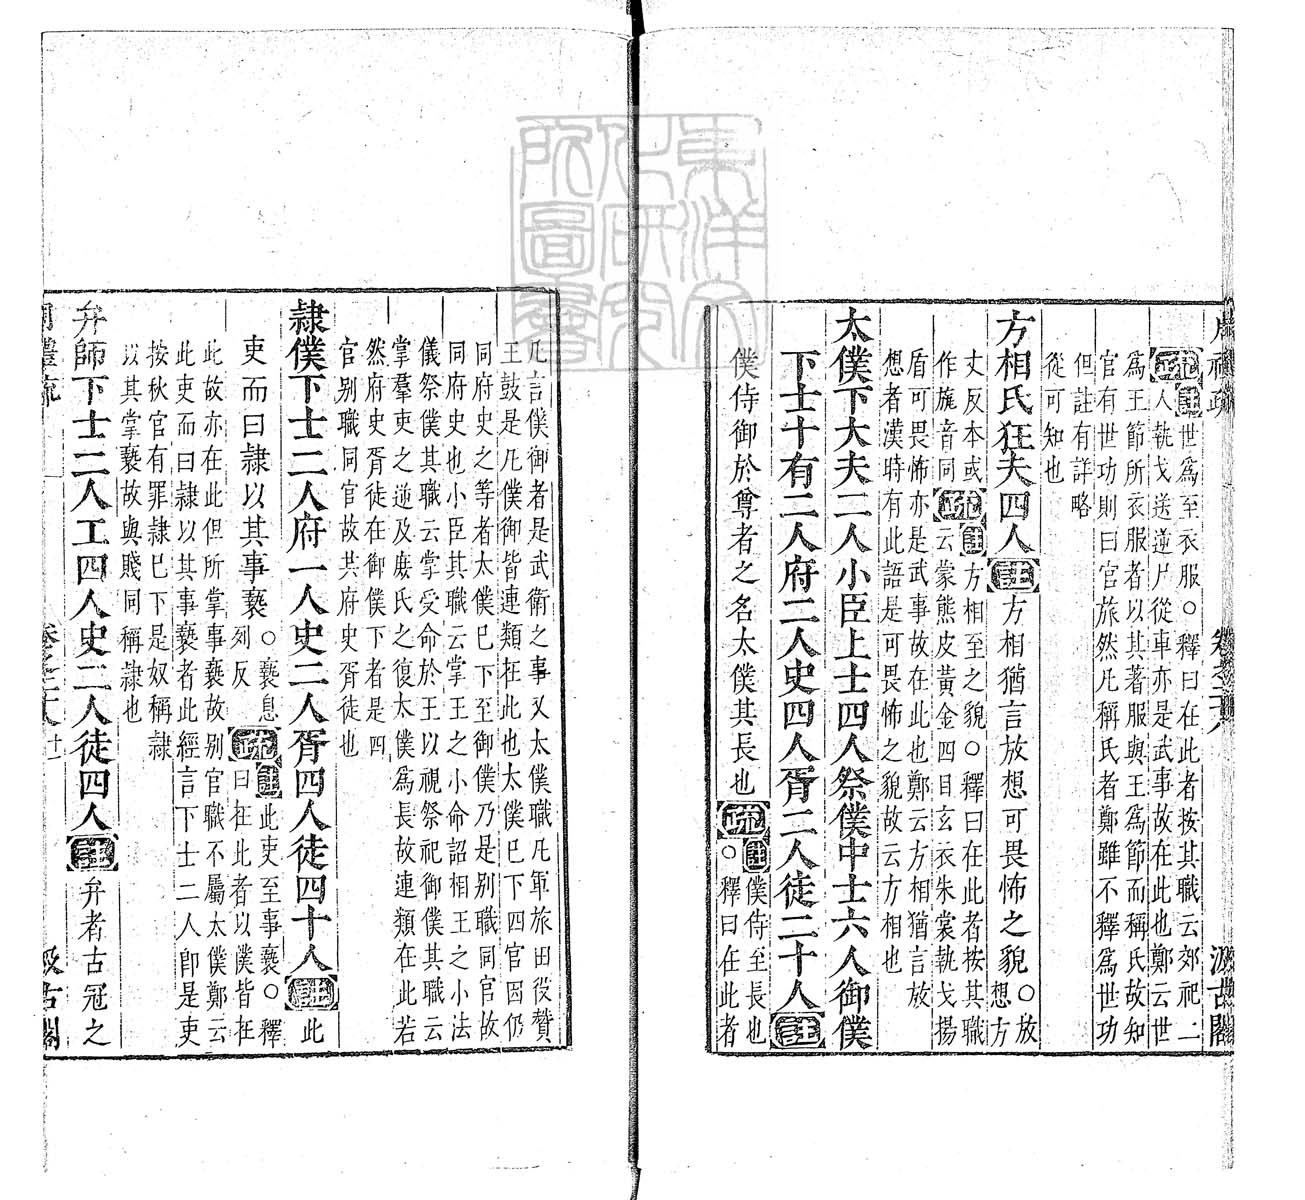 周禮疏 卷之二十八 汲古閣
疏 註世爲至衣服○釋曰在此者按其職云郊祀二
人執戈送逆尸從車亦是武事故在此也鄭云世
爲王節所衣服者以其著服與王爲節而稱氏故知
官有世功則曰官旅然凡稱氏者鄭雖不釋爲世功
但註有詳略
從可知也
方相氏狂夫四人 註 方相猶言放想可畏怖之貌 ○放想方
丈反本或作旊音同 疏 註方相至之貌○釋曰在此者按其職
云蒙熊皮黃金四目玄衣朱裳執戈揚
盾可畏怖亦是武事故在此也鄭云方相猶言放
想者漢時有此語是可畏怖之貌故云方相也
太僕下大夫二人小臣上士四人祭僕中士六人御僕
下士十有二人府二人史四人胥二人徒二十人 註
僕侍御於尊者之名太僕其長也 疏 註僕侍至長也
○釋曰在此者
凡言僕御者是武衛之事又太僕職凡軍旅田役贊
王鼓是凡僕御皆連類在此也太僕已下四官因仍
同府史之等者太僕已下至御僕乃是别職同官故
同府史也小臣其職云掌王之小命詔相王之小法
儀祭僕其職云掌受命於王以視祭祀御僕其職云
掌羣吏之逆及庶氏之復太僕爲長故連類在此若
然府史胥徒在御僕下者是四
官别職同官故共府史胥徒也
隷僕下士二人府一人史二人胥四人徒四十人 註 此
吏而曰隷以其事䙝 ○䙝息列反 疏 註此吏至事䙝○釋
曰在此者以僕皆在
此故亦在此但所掌事䙝故别官職不屬太僕鄭云
此吏而曰隷以其事䙝者此經言下士二人卽是吏
按秋官有罪隷已下是奴稱隷
以其掌䙝故與賤同稱隷也
弁師下士二人工四人史二人徒四人 註 弁者古冠之
周禮疏 卷之二十八 十一 汲古閣